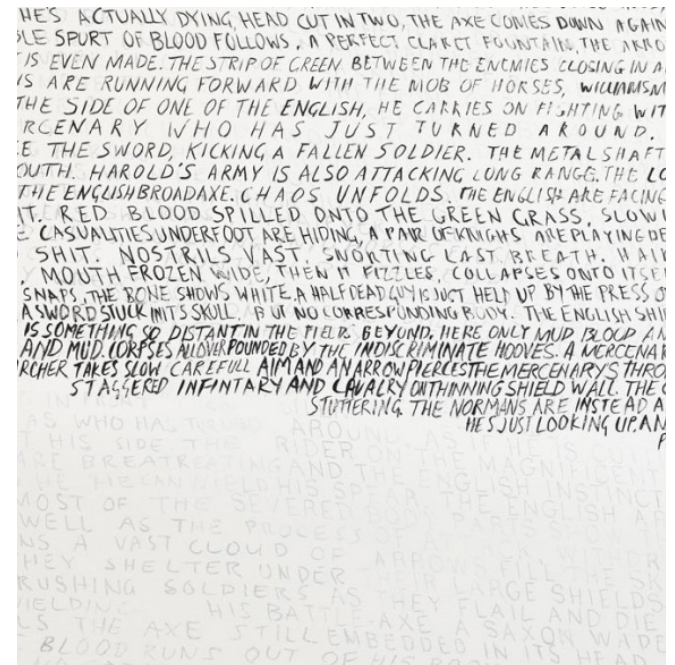 HE'S ACTUALLY DYING, HEAD CUT IN TWO, THE AXE COMES DOWN AGAIN
LE SPURT OF BLOOD FOLLOWS. A PERFECT CLARET FOUNTAIN, THE ARRO
IS EVEN MADE. THE STRIP OF GREEN BETWEEN THE ENEMIES CLOSING IN A
S ARE RUNNING FORWARD WITH THE MOB OF HORSES, WILLIAMSM
THE SIDE OF ONE OF THE ENGLISH, HE CARRIES ON FIGHTING WIT
RCENARY WHO HAS JUST TURNED AROUND.
E THE SWORD, KICKING A FALLEN SOLDIER. THE METAL SHAFT
OUTH. HAROLD'S ARMY IS ALSO ATTACKING LONG RANGE. THE LO
THE ENGLISH BROADAXE. CHAOS UNFOLDS. THE ENGLISH ARE FACING
IT. RED BLOOD SPILLED ONTO THE GREEN GRASS, SLOWL
E CASUALITIES UNDERFOOT ARE HIDING, A PAIR OF KNIGHTS ARE PLAYING DE
SHIT. NOSTRILS VAST. SNORTING LAST BREATH. HAI
MOUTH FROZEN WIDE, THEN IT FIZZLES, COLLAPSES ONTO ITSE
SNAPS, THE BONE SHOWS WHITE. A HALF DEAD GUY IS JUST HELD UP BY THE PRESS O
A SWORD STUCK IN ITS SKULL, BUT NO CORRESPONDING BODY. THE ENGLISH SHI
IS SOMETHING SO DISTANT IN THE FIELD BEYOND, HERE ONLY MUD BLOOD AN
AND MUD. CORPSES ALLOVER POUNDED BY THE INDISCRIMINATE HOOVES. A MERCENAR
RCHER TAKES SLOW CAREFULL AIM AND AN ARROW PIERCES THE MERCENARYS THRO
STAGGERED INFINTARY AND CAVALRY ON THINNING SHIELD WALL. THE
STUTTERING. THE NORMANS ARE INSTEAD A
HE'S JUST LOOKING UP, AN
AS WHO HAS TURNED AROUND. AS IF HE IS
T HIS SIDE THE RIDER ON THE MAGNIFICEN
ARE AND THE ENGLISH INSTINCT
HIS SPEAR THE ENGLISH AR
MOST OF THE SEVERED BODY PARTS SHOW
WELL AS THE PROCESS OF
NS A VAST CLOUD OF ARROWS FILL THE SK
HEY SHELTER UNDER THEIR LARGE SHIELDS
RUSHING SOLDIERS AS THEY FLAIL AND DIE
IELDING HIS BATTLE-AXE A SAXON WADE
LS THE AXE STILL EMBEDDED IN ITS HEAD
BLOOD RUNS OUT OF HIS